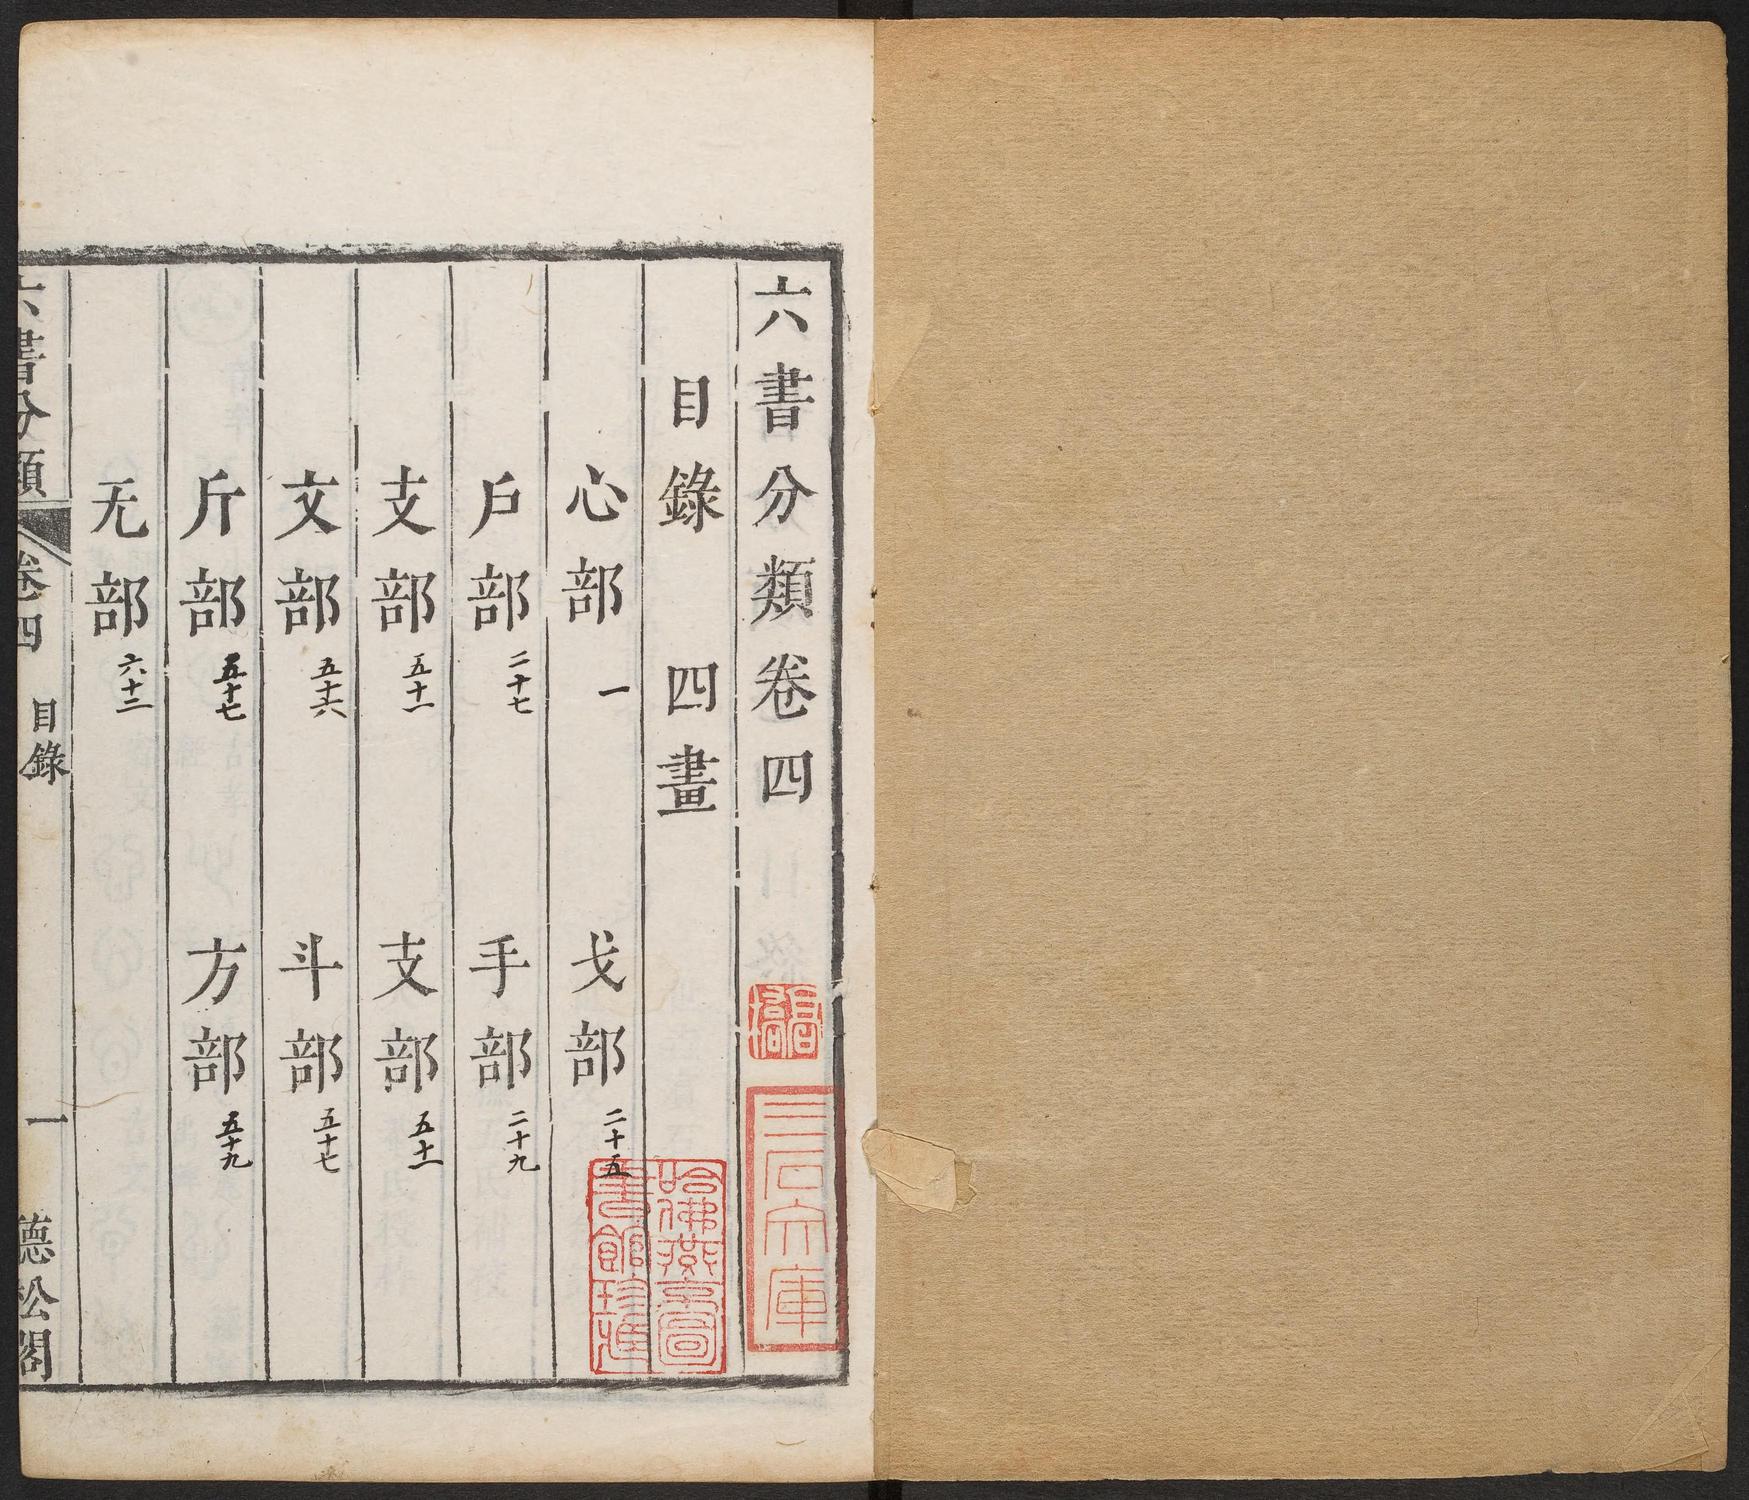 六書分類卷四
目錄 四畫
心部 一 戈部 二十五
戶部 二十七 手部 二十九
支部 五十一 支部 五十一
文部 五十六 斗部 五十七
斤部 五十七 方部 五十九
无部 六十二
六書分類 卷四 目錄 一 聽松閣
哈佛燕京圖書館珍藏